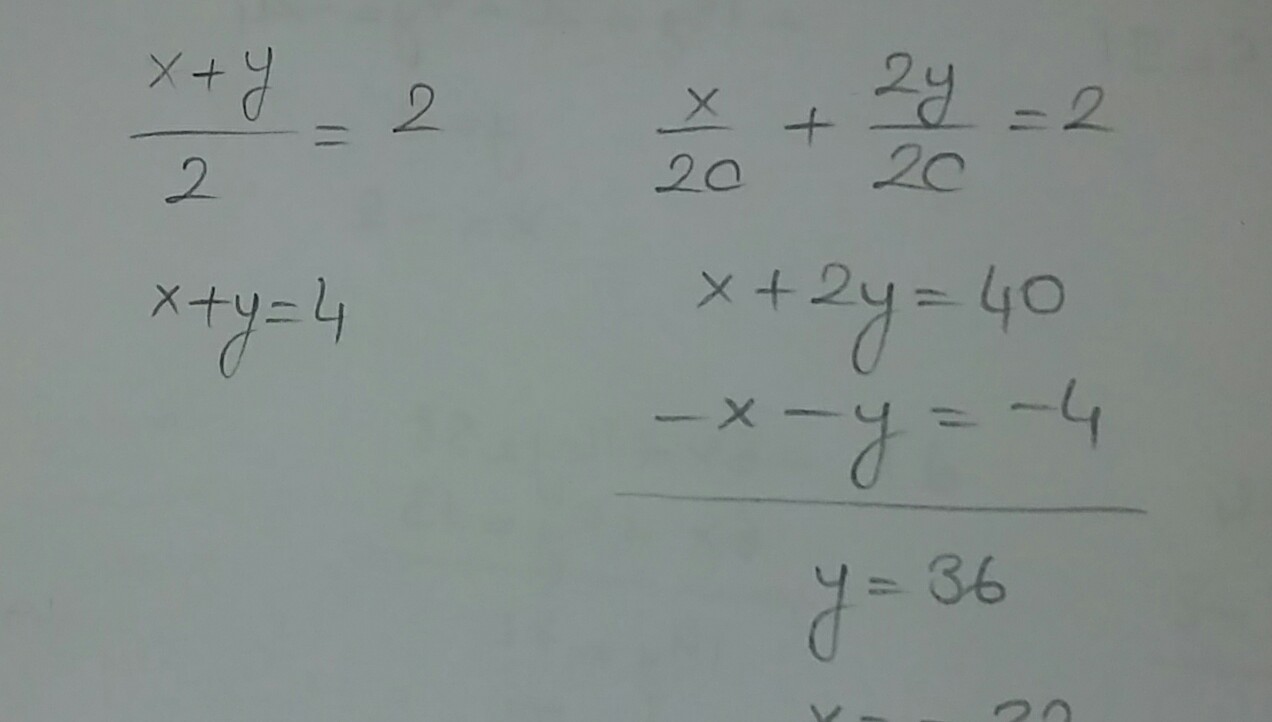 x+y/2 = 2
x+y=4
x/20 + 2y/20 = 2
x+2y=40
-x-y=-4
y=36